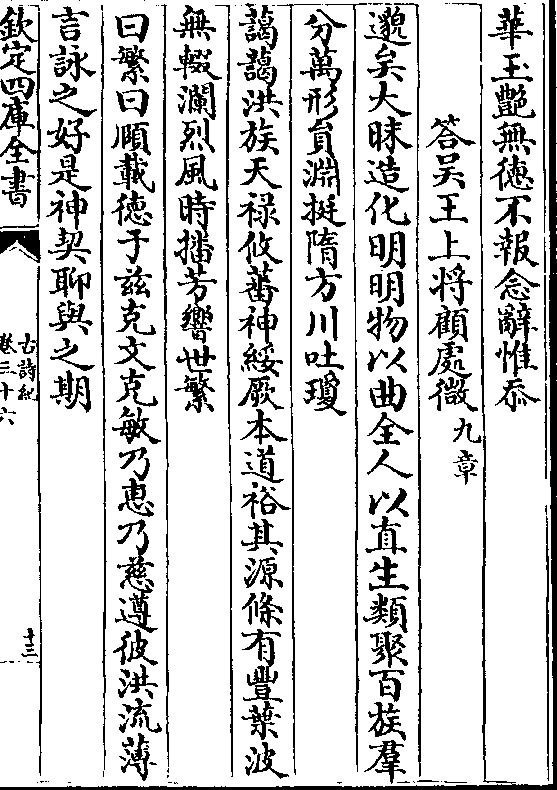 華玉艶無徳不報念辭惟忝
答吴王上将顧處微九章
邈矣大昧造化明明物以曲全人以直生類聚百族羣
分萬形員淵挺隋方川吐瓊
藹藹洪族天禄攸蕃神綏厥本道裕其源條有豐葉波
無輟瀾烈風時播芳響世繁
曰繁曰順載徳于兹克文克敏乃惠乃慈遵彼洪流薄
言詠之好是神契聊與之期
欽定四庫全書
古詩紀
卷三十六
十三